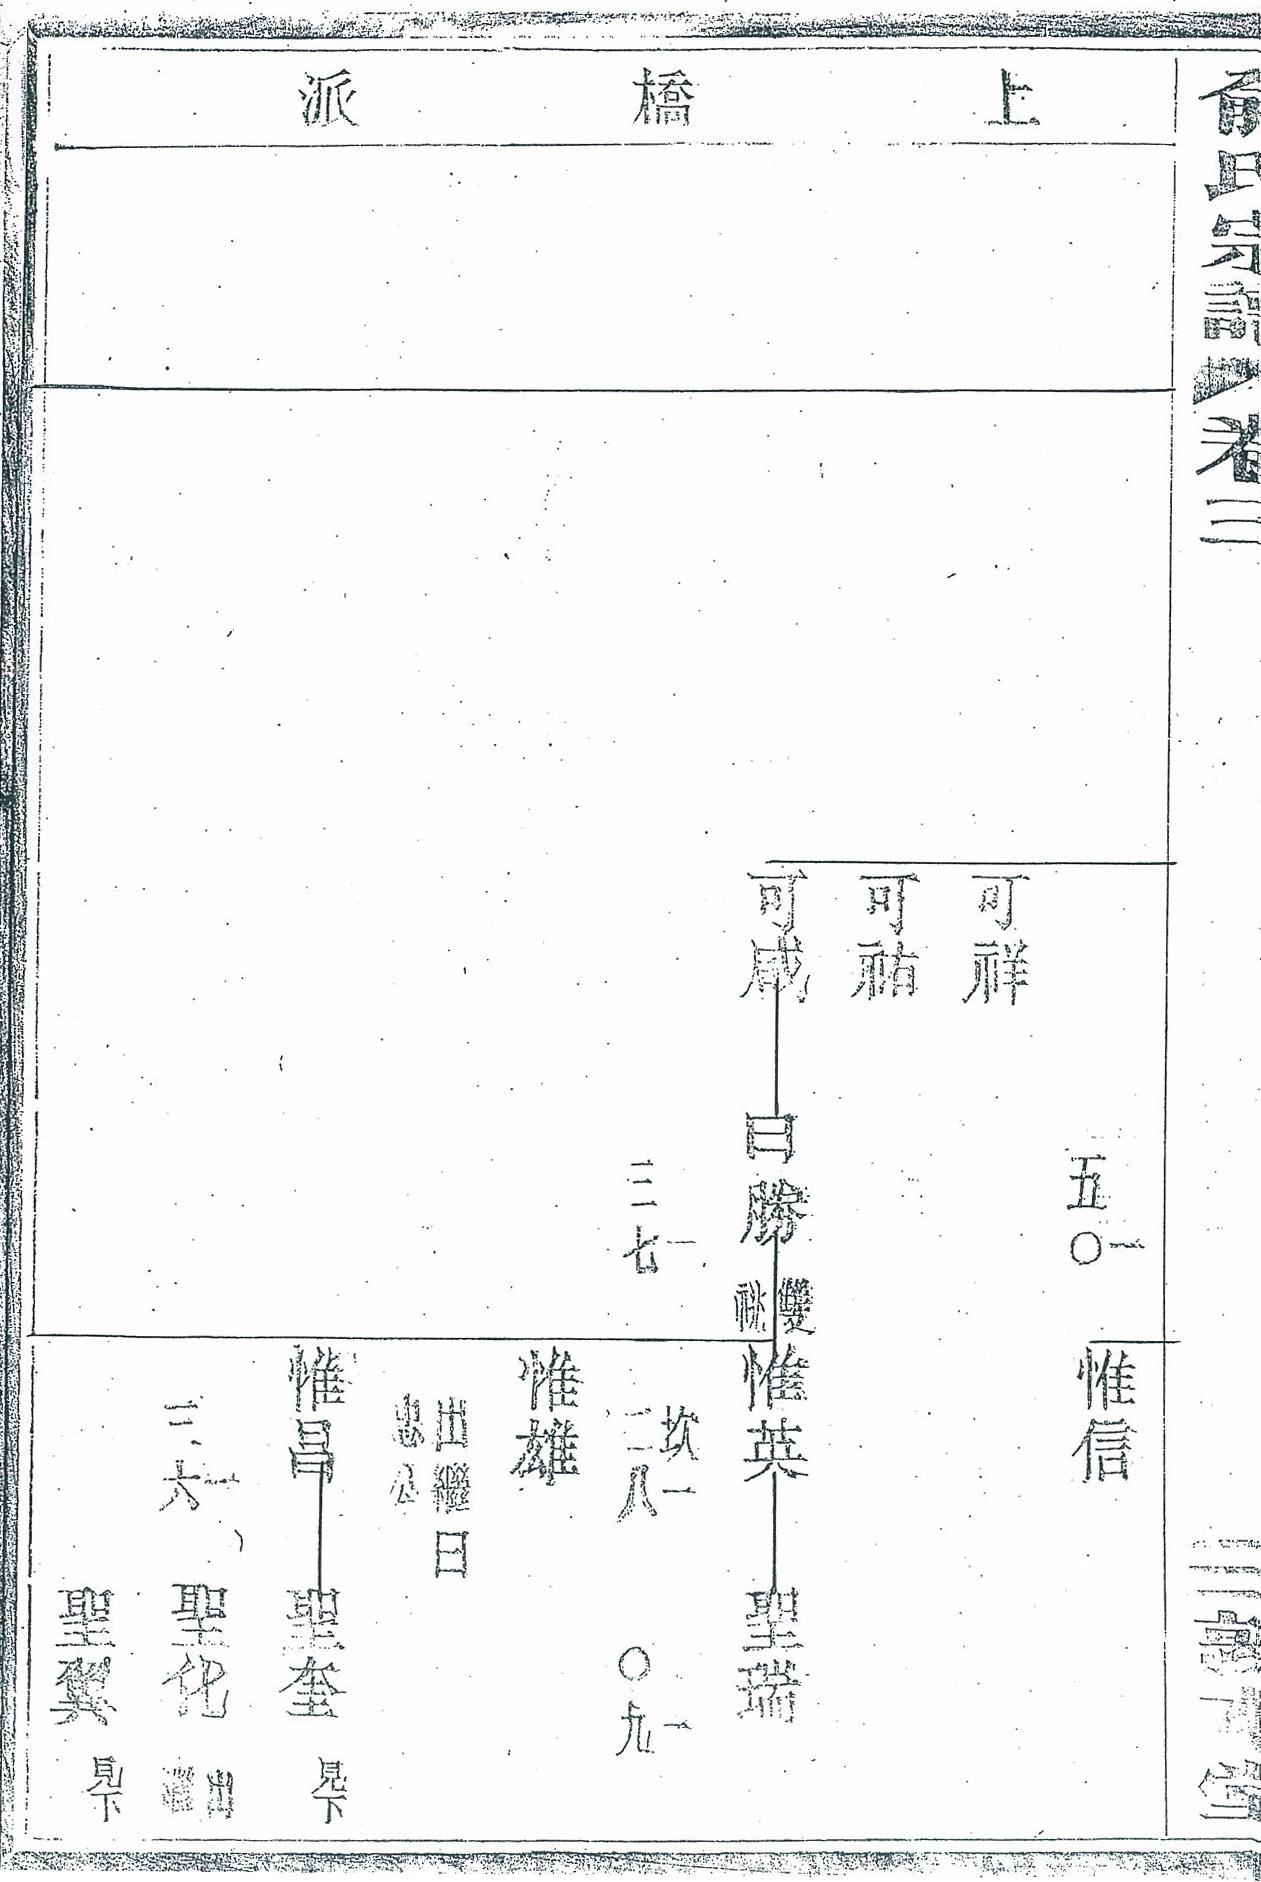 氏宗譜 卷三
堂
上橋派
可祥
可祐
可咸
曰勝
雙祧
五〇一
三七一
惟信
惟英
坎一
二八
惟雄
出繼曰
忠公
惟昌
三六一
聖瑞
〇九一
聖奎
見下
聖化
出繼
聖翼
見下